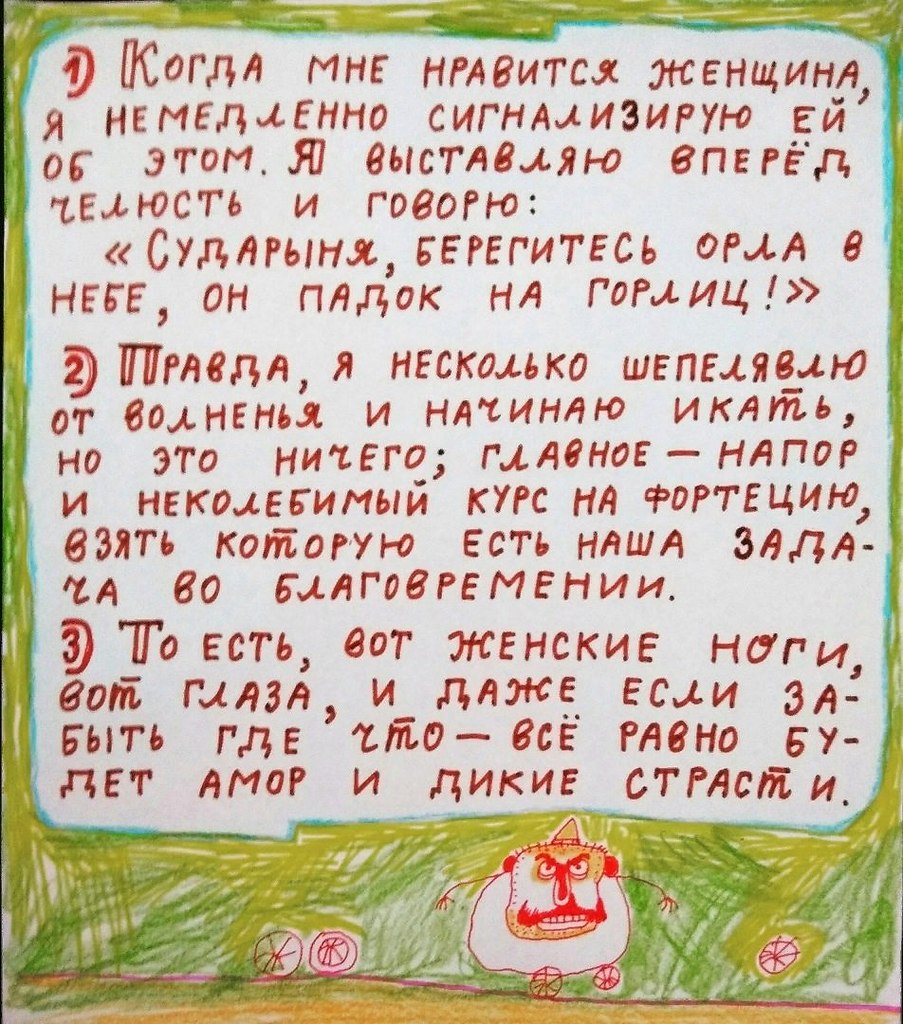 1) Когда мне нравится женщина,
я немедленно сигнализирую ей
об этом. Я выставляю вперёд
челюсть и говорю:
«Сударыня, берегитесь орла в
небе, он падок на горлиц!»
2) Правда, я несколько шепелявлю
от волненья и начинаю икать,
но это ничего; главное — напор
и неколебимый курс на фортецию,
взять которую есть наша зада-
ча во благовремении.
3) То есть, вот женские ноги,
вот глаза, и даже если за-
быть где что — всё равно бу-
дет амор и дикие страсти.